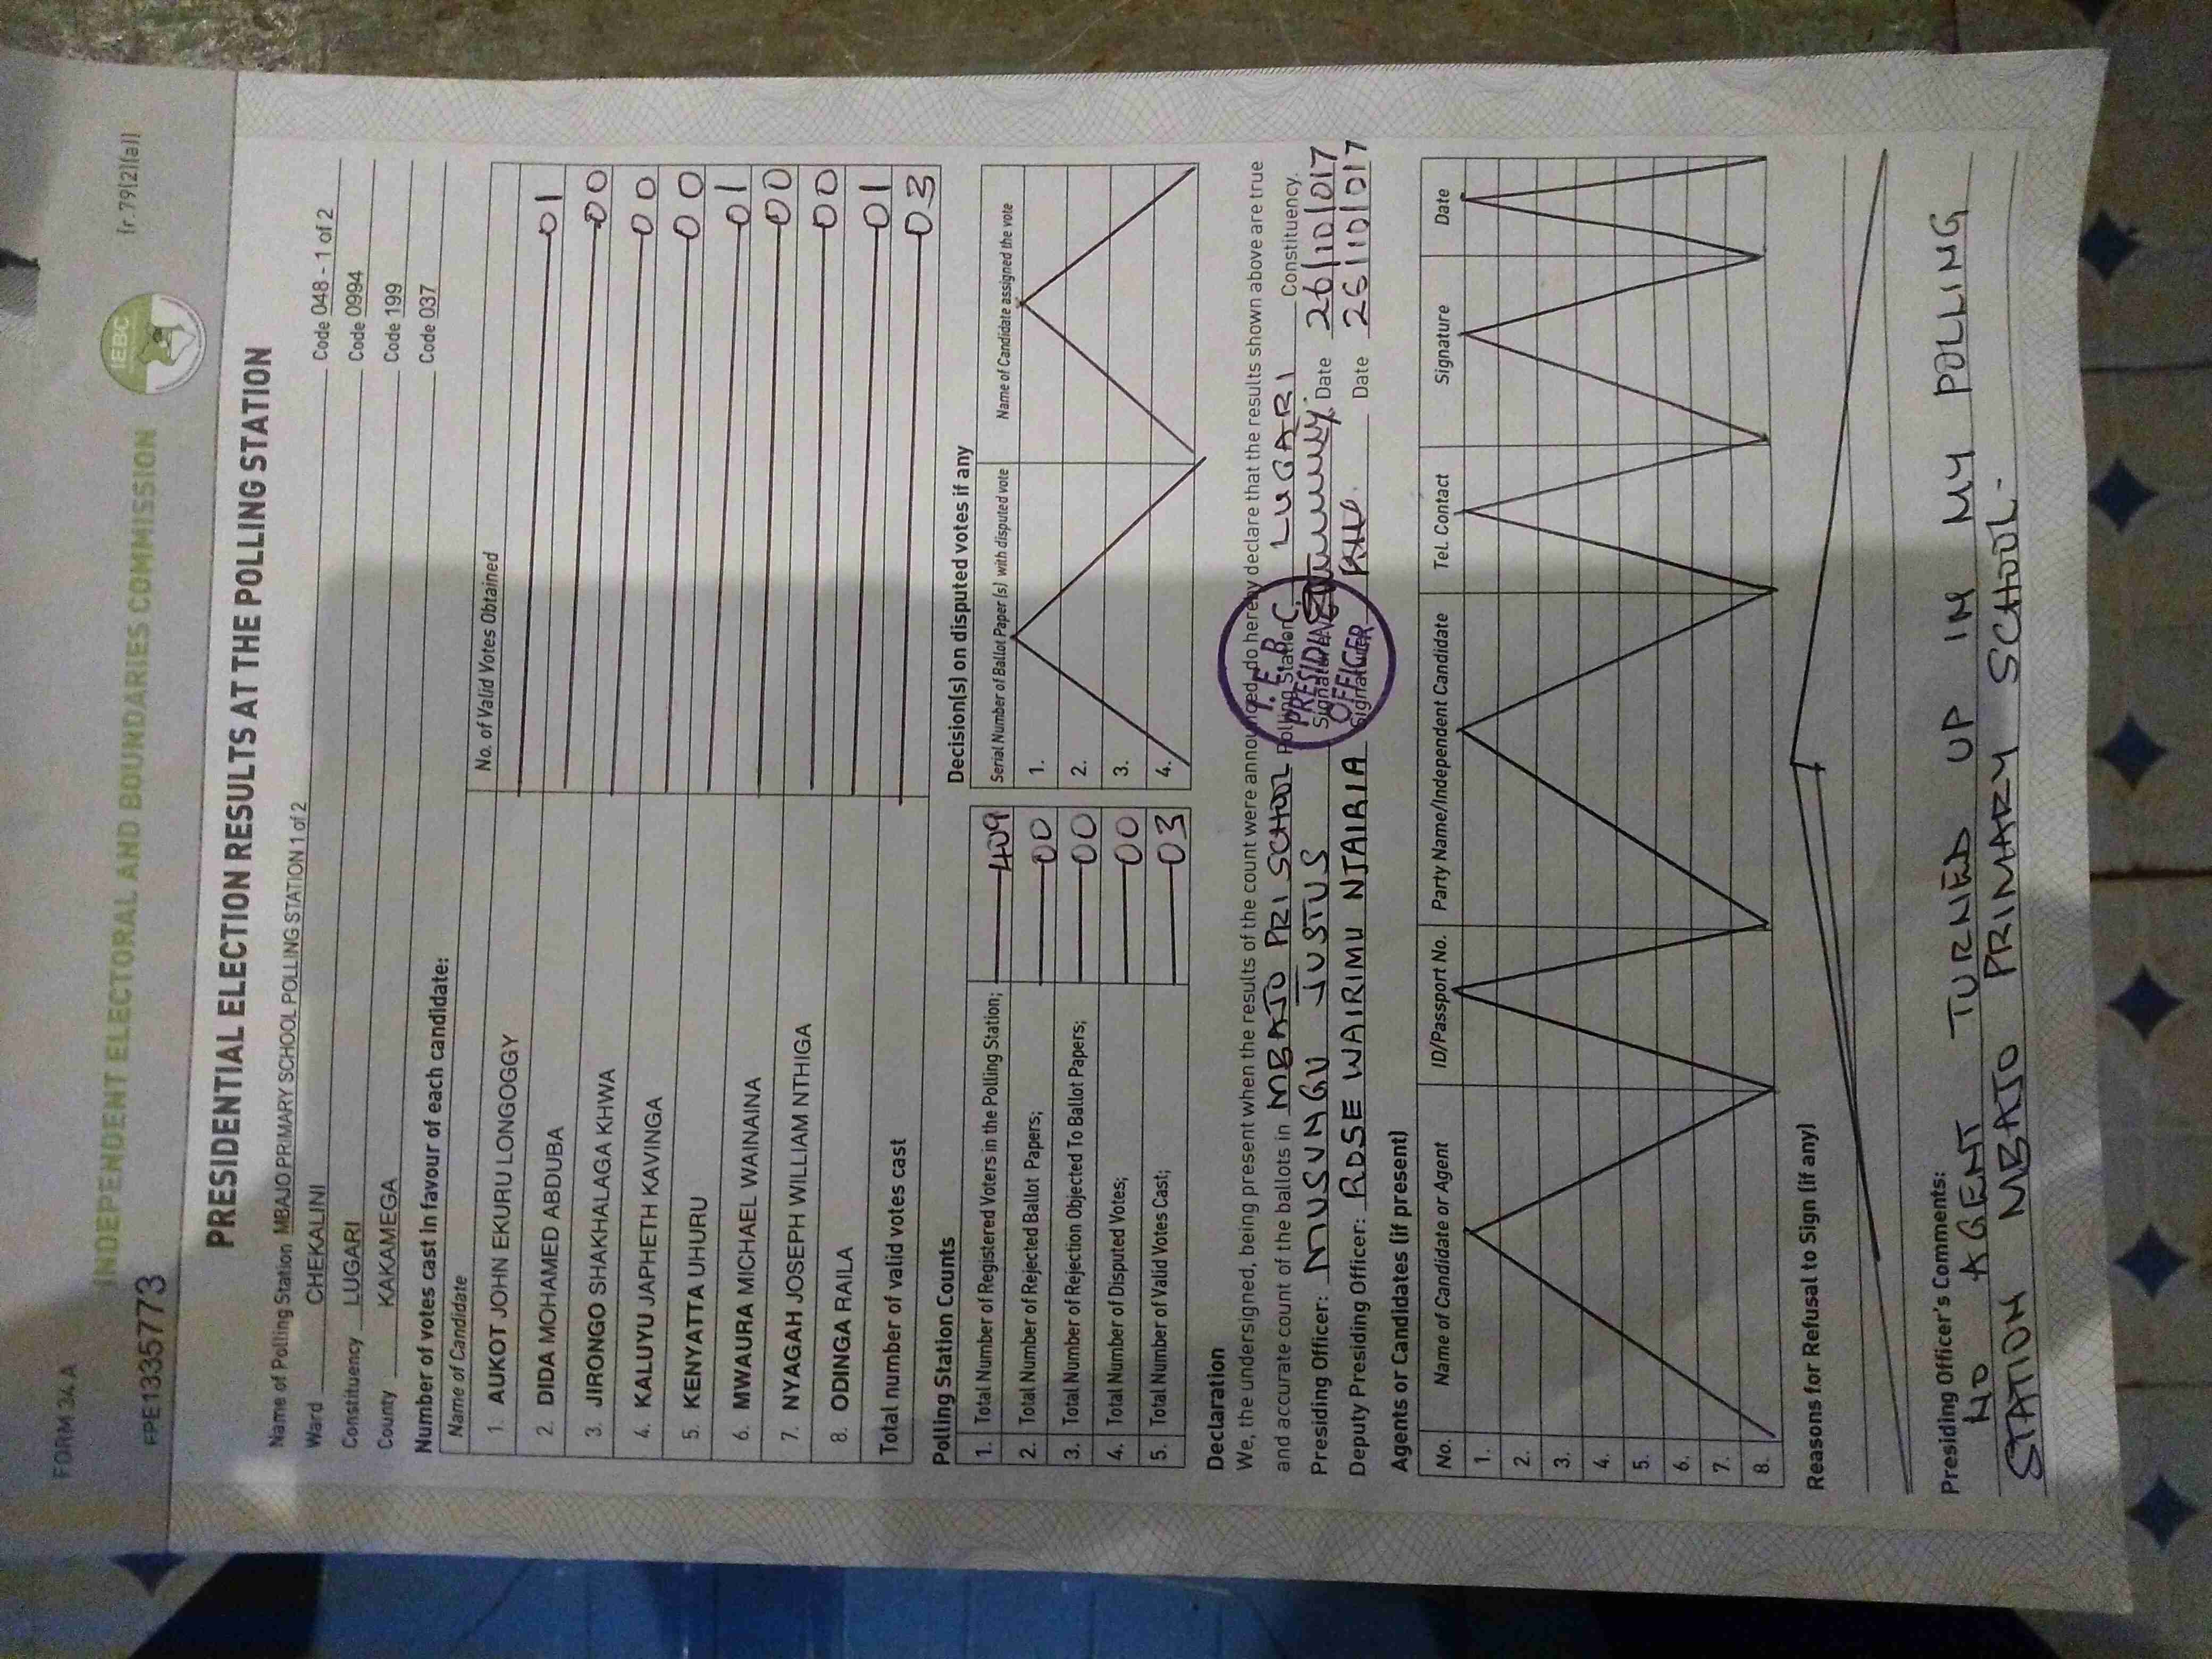 FORM 34A
[r.79(2)(a)]
INDEPENDENT ELECTORAL AND BOUNDARIES COMMISSION
IEBC
FPE1335773
PRESIDENTIAL ELECTION RESULTS AT THE POLLING STATION
Name of Polling Station MBAJO PRIMARY SCHOOL POLLING STATION 1 of 2 Code 048 - 1 of 2
Ward CHEKALINI Code 0994
Constituency LUGARI Code 199
County KAKAMEGA Code 037
Number of votes cast in favour of each candidate:
Name of Candidate No. of Valid Votes Obtained
1. AUKOT JOHN EKURU LONGOGGY 01
2. DIDA MOHAMED ABDUBA 00
3. JIRONGO SHAKHALAGA KHWA 00
4. KALUYU JAPHETH KAVINGA 00
5. KENYATTA UHURU 01
6. MWAURA MICHAEL WAINAINA 00
7. NYAGAH JOSEPH WILLIAM NTHIGA 00
8. ODINGA RAILA 01
Total number of valid votes cast 03
Polling Station Counts
1. Total Number of Registered Voters in the Polling Station; 409
2. Total Number of Rejected Ballot Papers; 00
3. Total Number of Rejection Objected To Ballot Papers; 00
4. Total Number of Disputed Votes; 00
5. Total Number of Valid Votes Cast; 03
Decision(s) on disputed votes if any
Serial Number of Ballot Paper (s) with disputed vote Name of Candidate assigned the vote
1.
2.
3.
4.
Declaration
We, the undersigned, being present when the results of the count were announced, do hereby declare that the results shown above are true
and accurate count of the ballots in MBAJO PRI SCHOOL Polling Station LUGARI Constituency.
Presiding Officer: MUSUNGU JUSTUS Signature Date 26/10/017
Deputy Presiding Officer: ROSE WAIRIMU NJAIRIA Signature Date 26/10/017
I.E.B.C.
PRESIDING
OFFICER
Agents or Candidates (if present)
No. Name of Candidate or Agent ID/Passport No. Party Name/Independent Candidate Tel. Contact Signature Date
1.
2.
3.
4.
5.
6.
7.
8.
Reasons for Refusal to Sign (if any)
Presiding Officer's Comments:
NO AGENT TURNED UP IN MY POLLING
STATION MBAJO PRIMARY SCHOOL.-